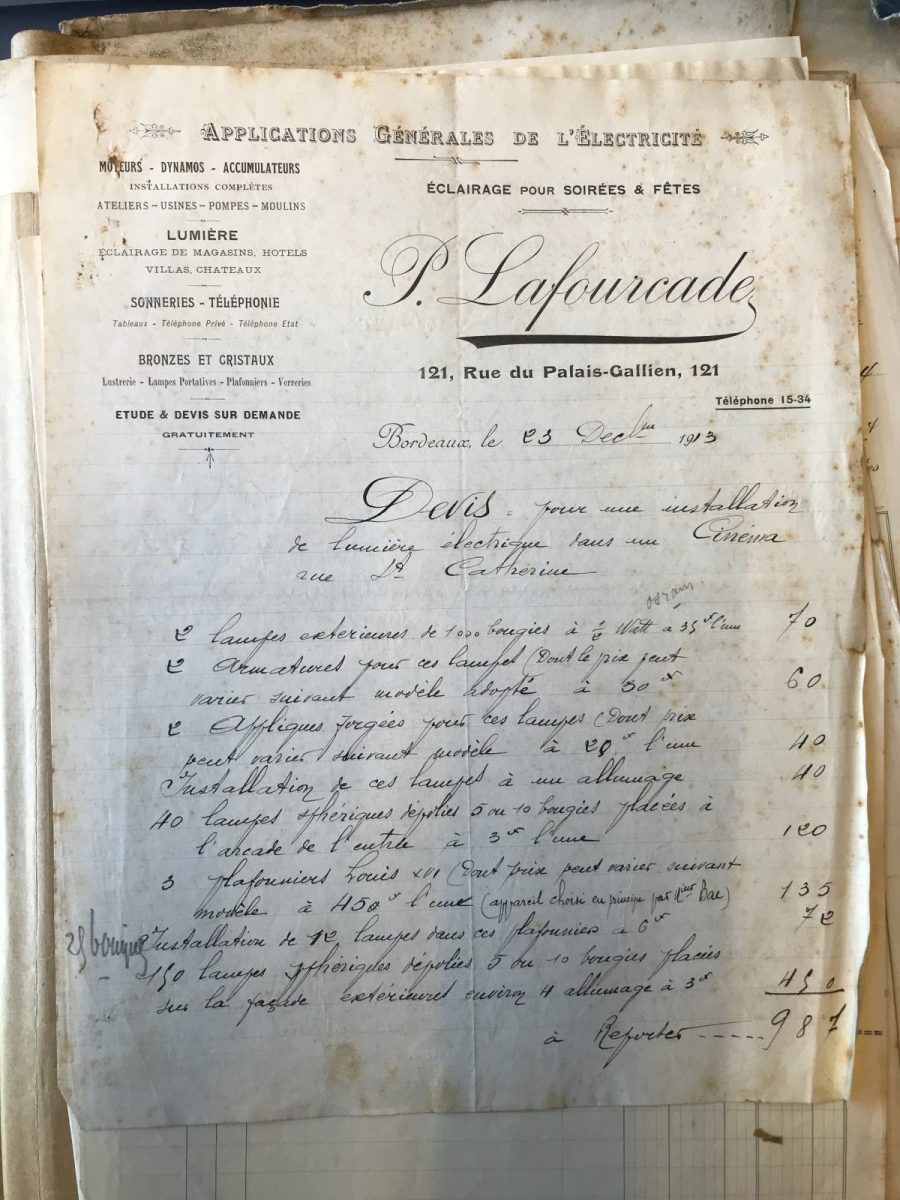 APPLICATIONS GÉNÉRALES DE L'ÉLECTRICITÉ
MOTEURS - DYNAMOS - ACCUMULATEURS
INSTALLATIONS COMPLÈTES
ATELIERS - USINES - POMPES - MOULINS
LUMIÈRE
ÉCLAIRAGE DE MAGASINS, HOTELS
VILLAS, CHATEAUX
SONNERIES - TÉLÉPHONIE
Tableaux - Téléphone Privé - Téléphone Etat
BRONZES ET CRISTAUX
Lustrerie - Lampes Portatives - Plafonniers - Verreries
ETUDE & DEVIS SUR DEMANDE
GRATUITEMENT
ÉCLAIRAGE POUR SOIRÉES & FÊTES
P. Lafourcade
121, Rue du Palais-Gallien, 121
Téléphone 15-34
Bordeaux, le 23 Decbre 1913
Devis = pour une installation
de lumière électrique dans un Cinéma
rue Ste Catherine
osram
2 lampes extérieures de 1000 bougies à ½ Watt a 35 fr l'une 70
2 Armatures pour ces lampes (Dont le prix peut
varier suivant modèle adopté à 30 fr 60
2 Appliques forgées pour ces lampes (Dont prix
peut varier suivant modèle à 20 fr l'une 40
Installation de ces lampes à un allumage 40
40 lampes sphériques dépolies 5 ou 10 bougies placées à
l'arcade de l'entrée à 3 fr l'une 120
3 plafonniers Louis XVI (Dont prix peut varier suivant
modèle à 45 fr l'une (appareil choisi en principe par 135
Installation de 12 lampes dans ces plafonniers à 6 fr 72
25 bougies
150 lampes sphériques dépolies 5 ou 10 bougies placées
sur la façade extérieures environ 4 allumage à 3 fr 450
à Reporter ----- 987